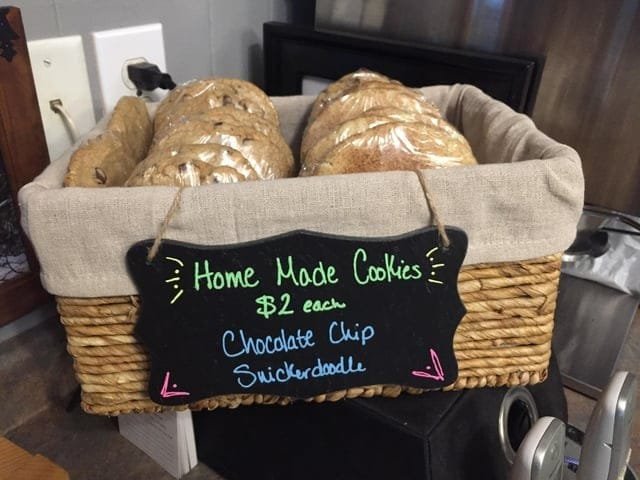 Home Made Cookies
$2 each
Chocolate Chip
Snickerdoodle